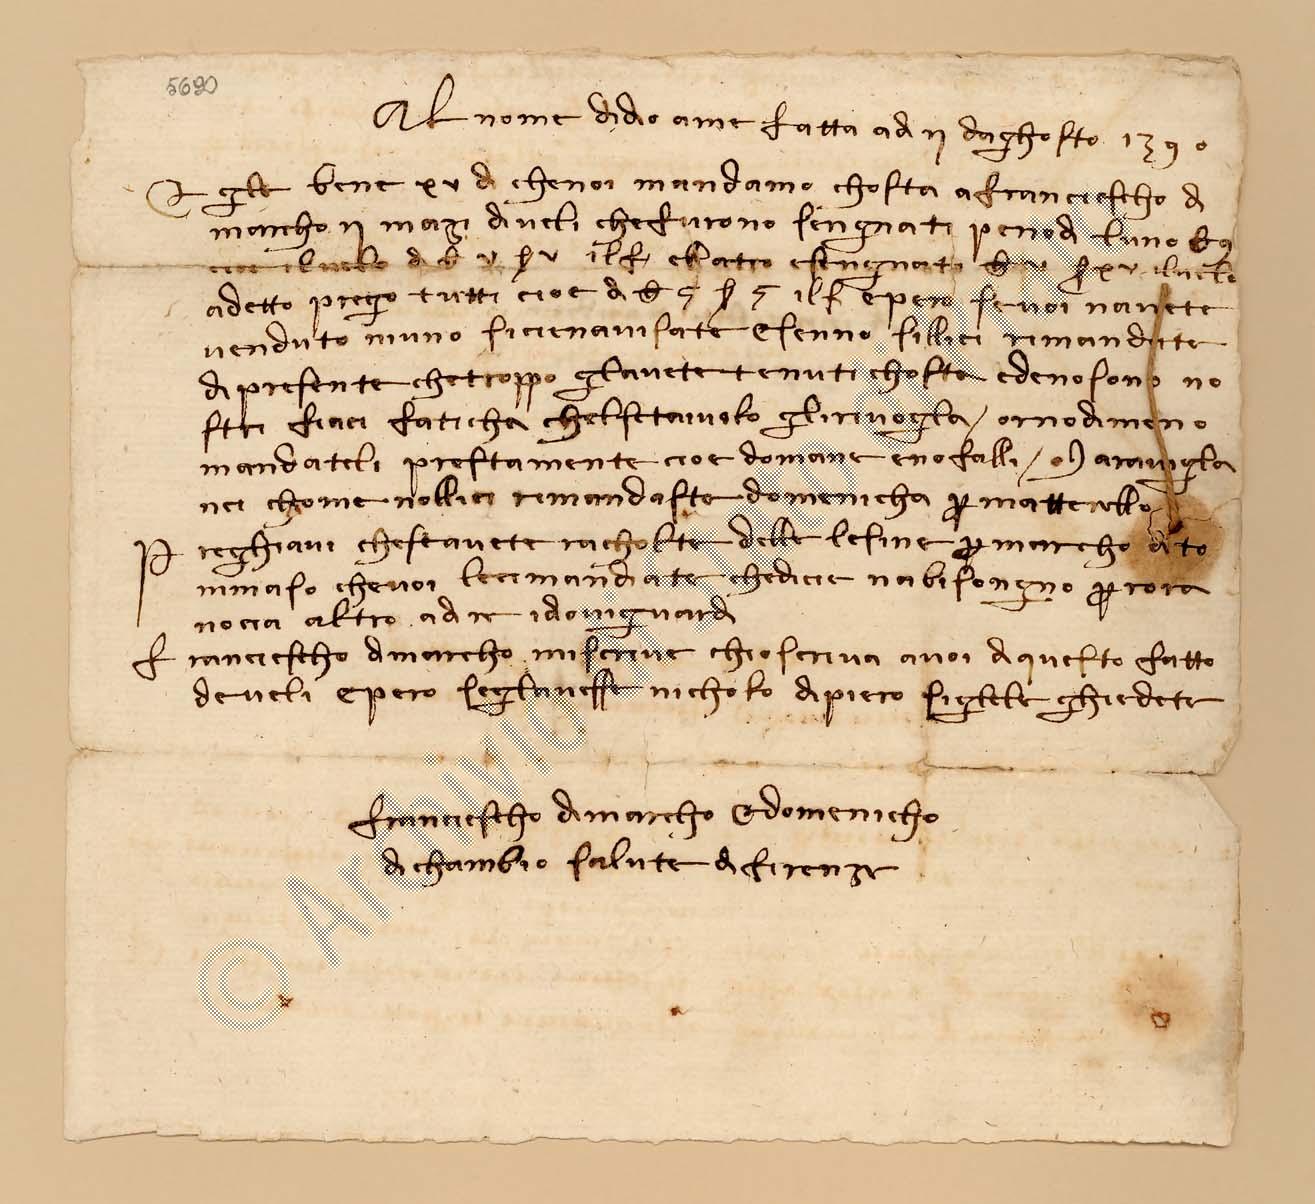 5690
Al nome di dio ame fatta ad ij daghosto 1390
Egle bene xv dì che noi mandamo chosta a franciescho di
marcho ij mazi di veli che furono sengnati peno di l uno
adetto prego tutti cioe di e pero se voi navete
venduto niuno sicienavisate e se nno sillici rimandate
di presente che troppo glavete tenuti chosta ed e no sono no
stri fiaci faticha chelsetaiuolo gli rivogla / or no di meno
mandateli prestamente cioe domane e no falli / maravigla
nci chome nollici rimandaste domenicha per matterello
Preghiavi che se avete racholte delle lesine per marcho di to
mmaso che voi le ci mandiate che dicie nabisongno per rora
nocia altro a dire idio vi guardi
Franciescho di marcho mi scrive chio scriva a voi di questo fatto
de veli e pero se glavesse nicholo di piero sigliele chiedete
franciescho di marcho e domenicho
di chambio salute di firenze
© Archivio